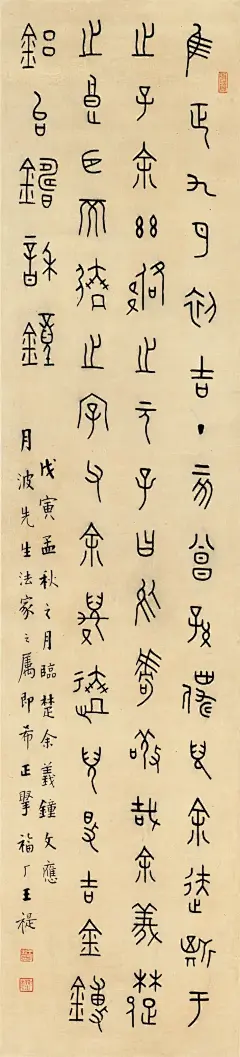 隹正九月初吉丁亥曾孫僕兒余达斯于
之子余茲佫之元子曰於嘑敬哉余義楚
之良臣而逨之字父余贎逨兒得吉金鎛
鋁台鑄訶鐘
戊寅孟秋之月臨楚余義鐘文應
月波先生法家之属即希正掔福厂王禔